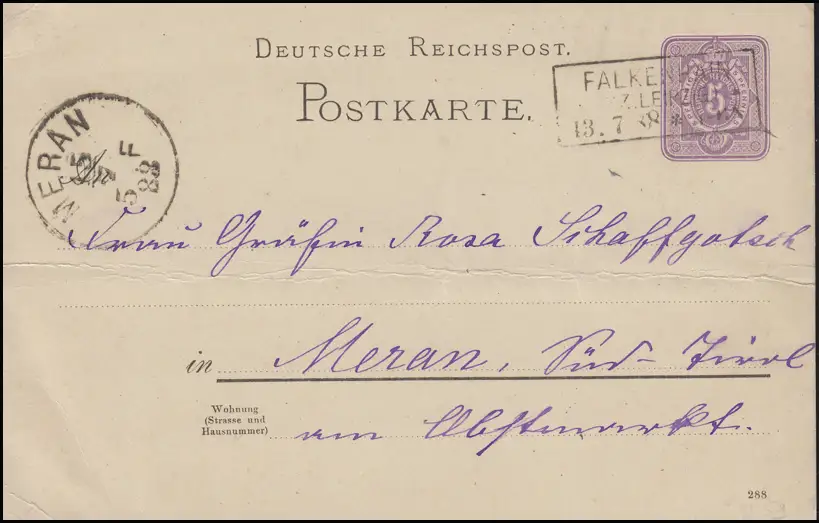 DEUTSCHE REICHSPOST.
POSTKARTE.
FALKEN
13. 7 88 *
5
MERAN
88
Frau Gräfin Rosa Schaffgotsch
in Meran, Süd-Tirol
Wohnung
(Strasse und
Hausnummer)
am Obstmarkt.
288